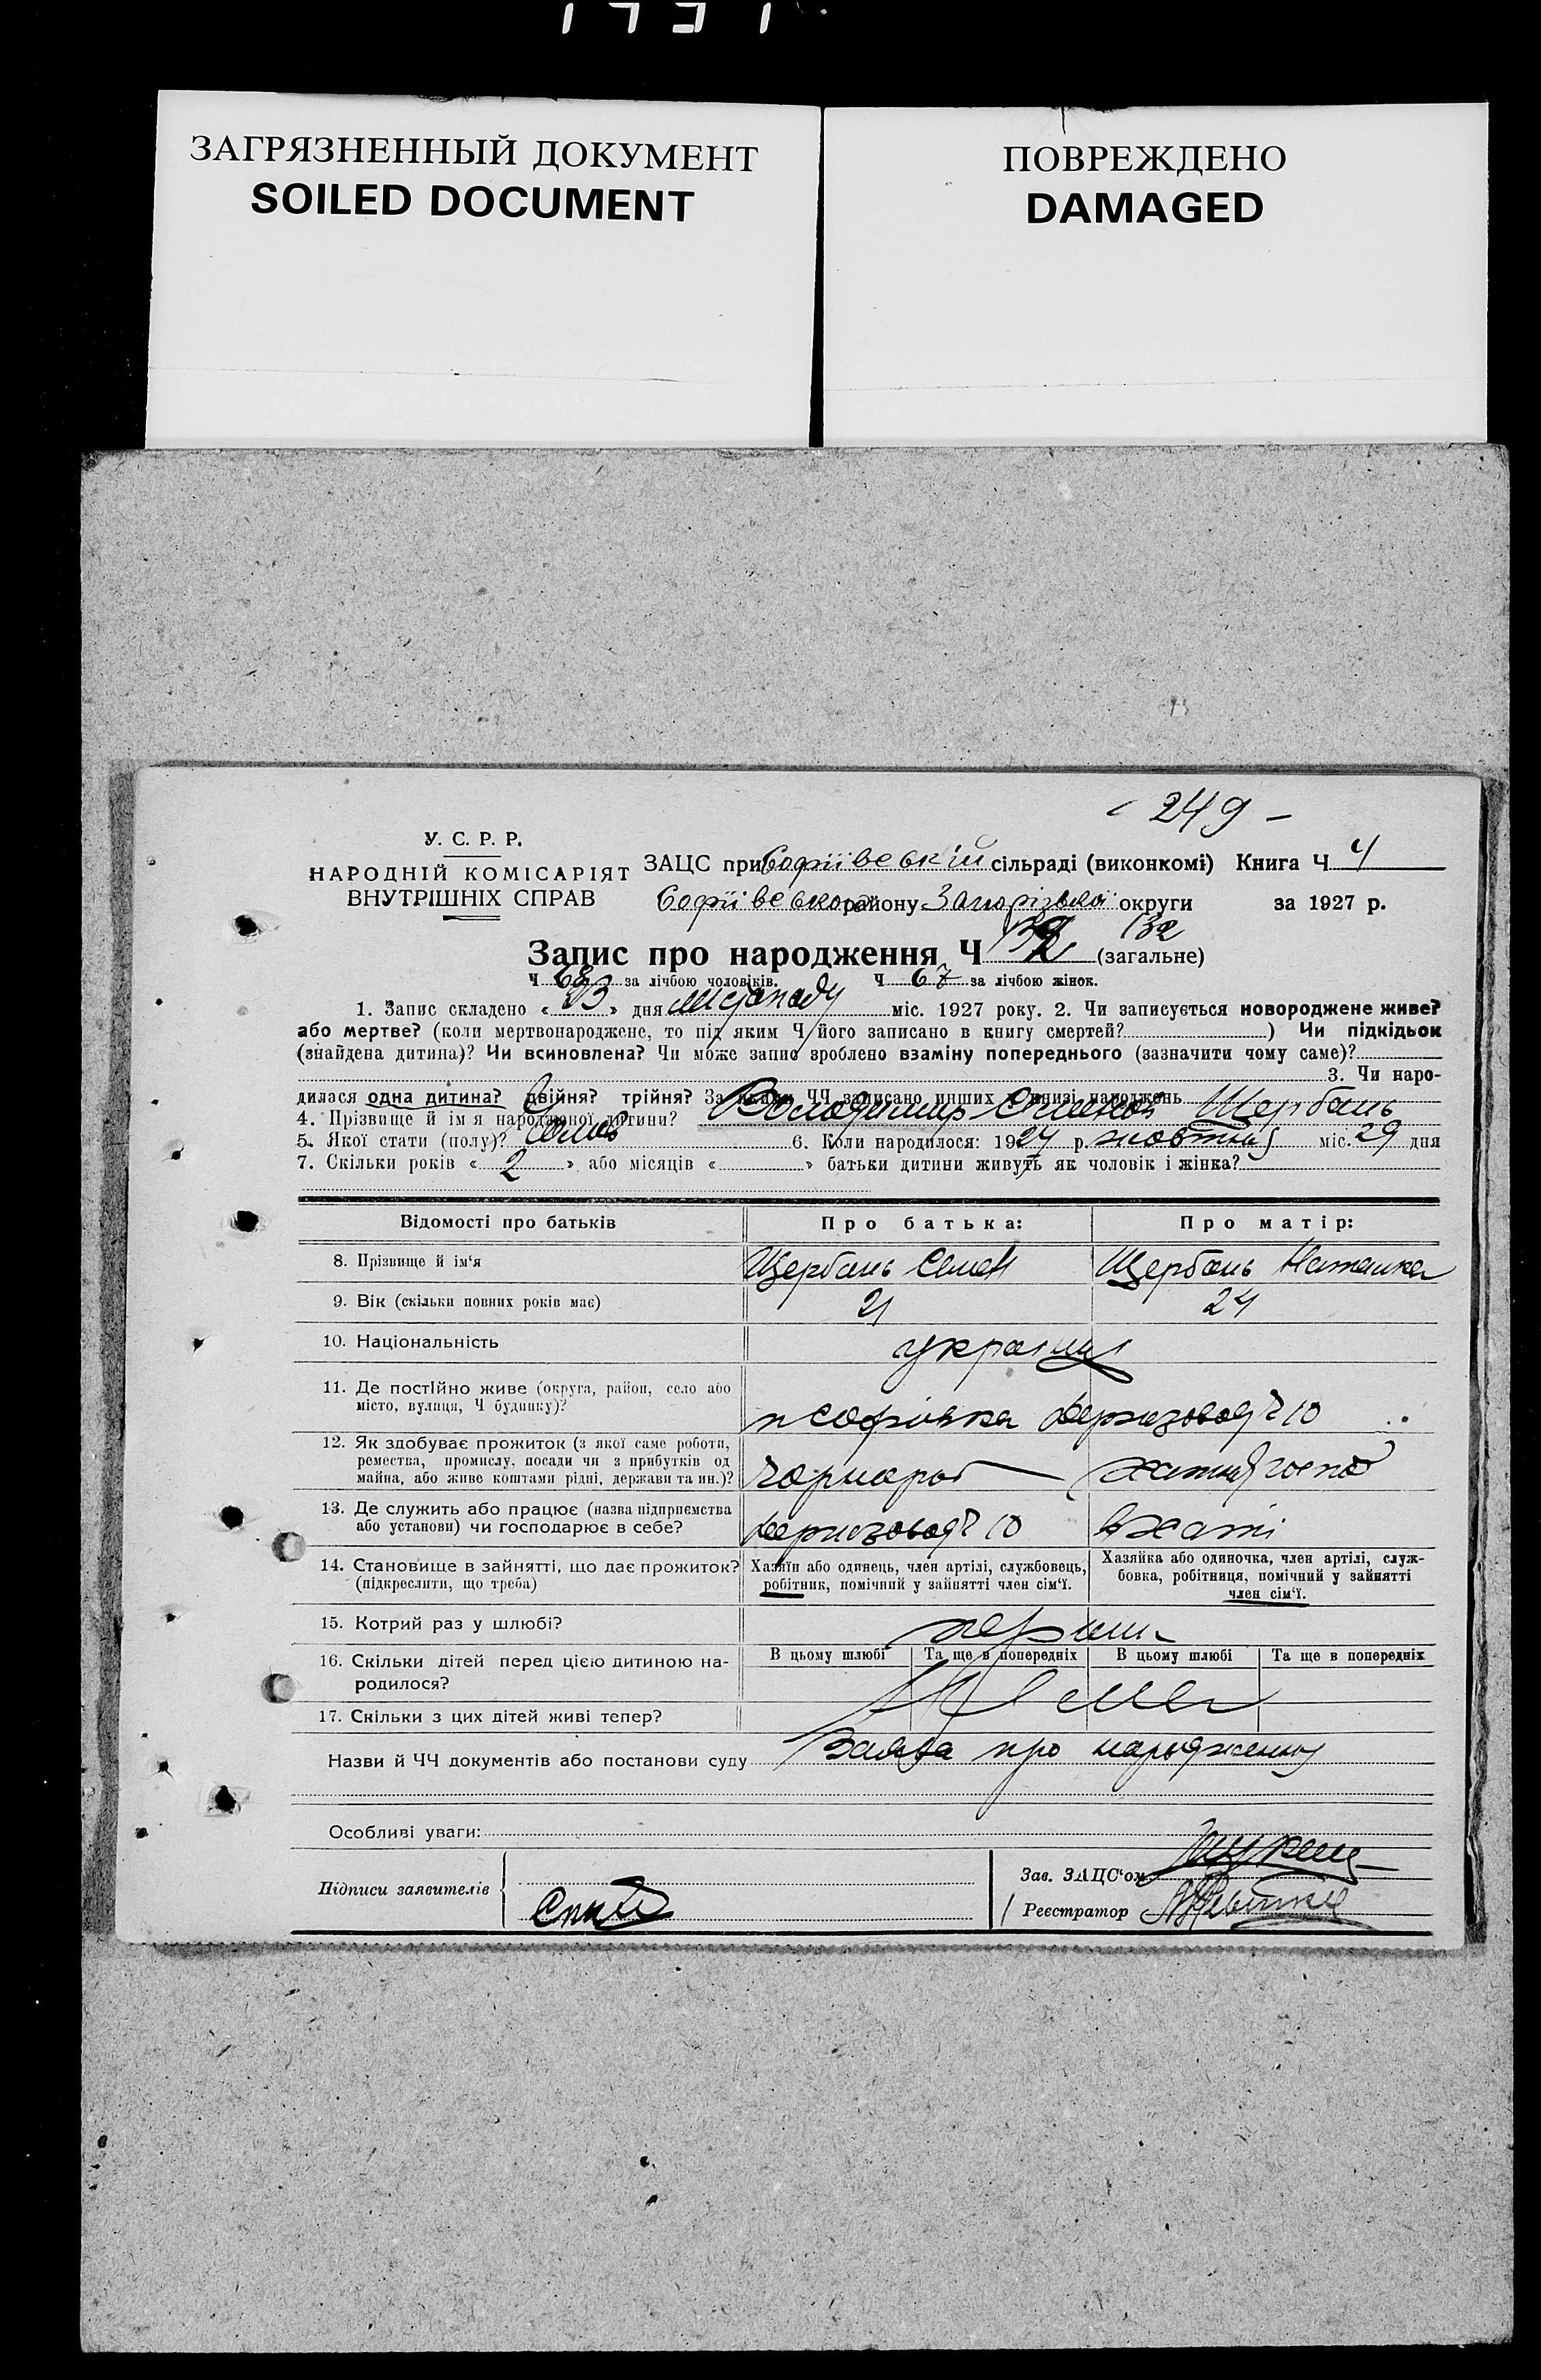 ЗАГРЯЗНЕННЫЙ ДОКУМЕНТ
SOILED DOCUMENT
ПОВРЕЖДЕНО
DAMAGED
249 -
У. С. Р. Р.
НАРОДНІЙ КОМІСАРІЯТ
ВНУТРІШНІХ СПРАВ
ЗАЦС при Софіївській сільраді (виконкомі) Книга Ч 4
Софіївського району Запорізької округи за 1927 р.
132
Запис про народження Ч (загальне)
Ч 68 за лічбою чоловіків. Ч 67 за лічбою жінок.
1. Запис складено « » дня листопаду міс. 1927 року. 2. Чи записується новороджене живе?
або мертве? (коли мертвонароджене, то під яким Ч його записано в книгу смертей? ) Чи підкідьок
(знайдена дитина)? Чи всиновлена? Чи може запис зроблено взаміну попереднього (зазначити чому саме)?
3. Чи наро-
дилася одна дитина? двійня? трійня? За якими ЧЧ записано инших в книзі народжень
4. Прізвище й ім'я народженої дитини? Володимир Семенов Щербань
5. Якої стати (полу)? 6. Коли народилося: 1927 р. жовтня міс. 29 дня
7. Скільки років « 2 » або місяців « » батьки дитини живуть як чоловік і жінка?
Відомості про батьків
Про батька:
Про матір:
8. Прізвище й ім'я
Щербань Семен
Щербань Наташка
9. Вік (скільки повних років має)
21
24
10. Національність
україн
11. Де постійно живе (округа, район, село або
місто, вулиця, Ч будинку)?
Софіівка Держзавод Ч 10
12. Як здобуває прожиток (з якої саме роботи,
ремества, промислу, посади чи з прибутків од
майна, або живе коштами рідні, держави та ин.)?
Чорнороб
хатня госпо
13. Де служить або працює (назва підприємства
або установи) чи господарює в себе?
Держзавод Ч 10
в хаті
14. Становище в зайнятті, що дає прожиток?
(підкреслити, що треба)
Хазяїн або одинець, член артілі, службовець,
робітник, помічний у зайнятті член сім'ї.
Хазяйка або одиночка, член артілі, служ-
бовка, робітниця, помічний у зайнятті
член сім'ї.
15. Котрий раз у шлюбі?
перший
16. Скільки дітей перед цією дитиною на-
родилося?
В цьому шлюбі
Та ще в попередніх
В цьому шлюбі
Та ще в попередніх
Нема
17. Скільки з цих дітей живі тепер?
Назви й ЧЧ документів або постанови суду Заява про народження
Особливі уваги:
Підписи заявителів
Зав. ЗАЦС'ом
Реєстратор